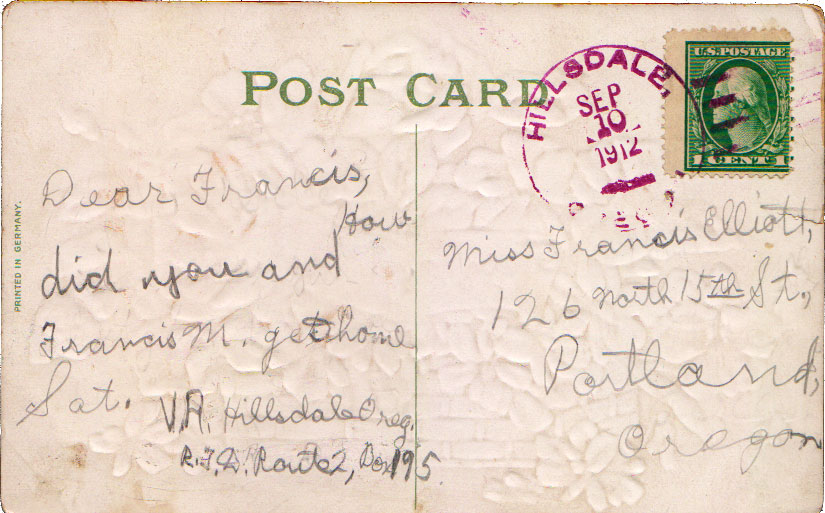 POST CARD
HILLSDALE,
SEP
10
1912
U.S. POSTAGE
1 CENT 1
PRINTED IN GERMANY.
Dear Francis,
How
did you and
Francis M. get home
Sat.
V.A. Hillsdale Oreg.
R.F.D. Route 2, Box 195.
Miss Francis Elliott,
126 North 15th St.,
Portland,
Oregon